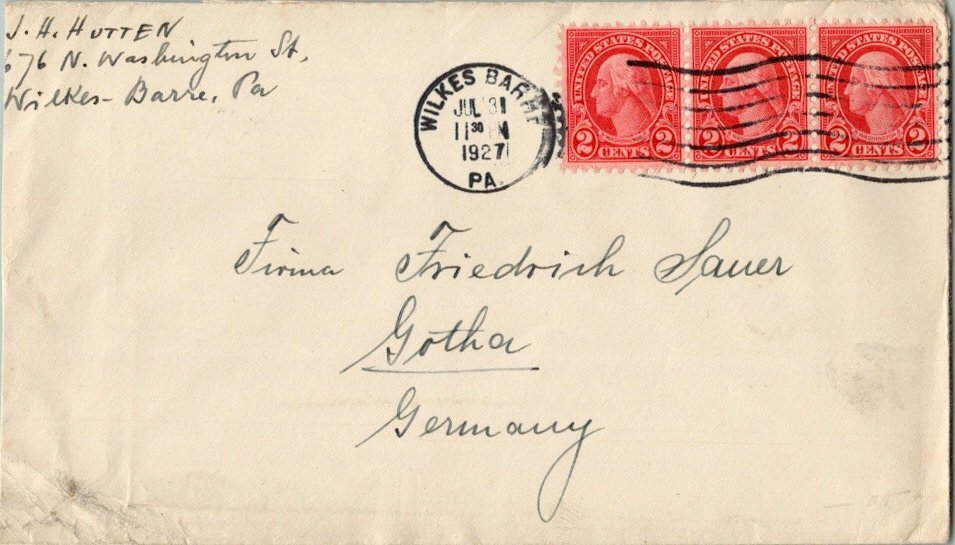 J. H. HUTTEN
676 N. Washington St.
Wilkes-Barre, Pa
WILKES BARRE
JUL 31
11 30 PM
1927
PA.
UNITED STATES POSTAGE
2 CENTS 2
UNITED STATES POSTAGE
2 CENTS 2
UNITED STATES POSTAGE
2 CENTS 2
Firma Friedrich Sauer
Gotha
Germany